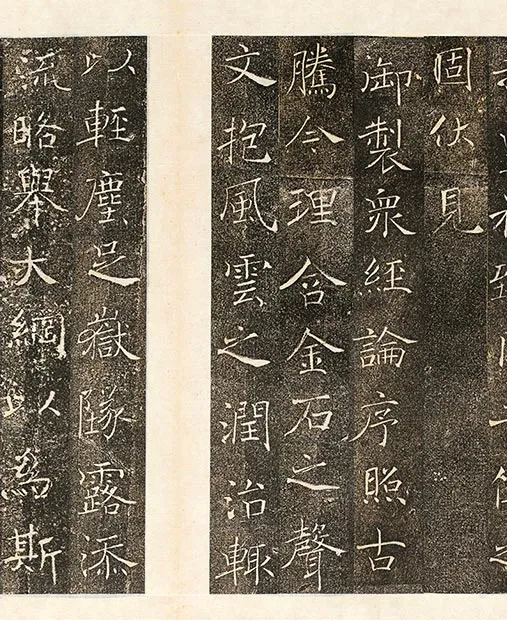 固伏見
御製衆經論序照古
騰今理含金石之聲
文抱風雲之潤治輒
以輕塵足嶽隊露添
流略舉大綱以爲斯